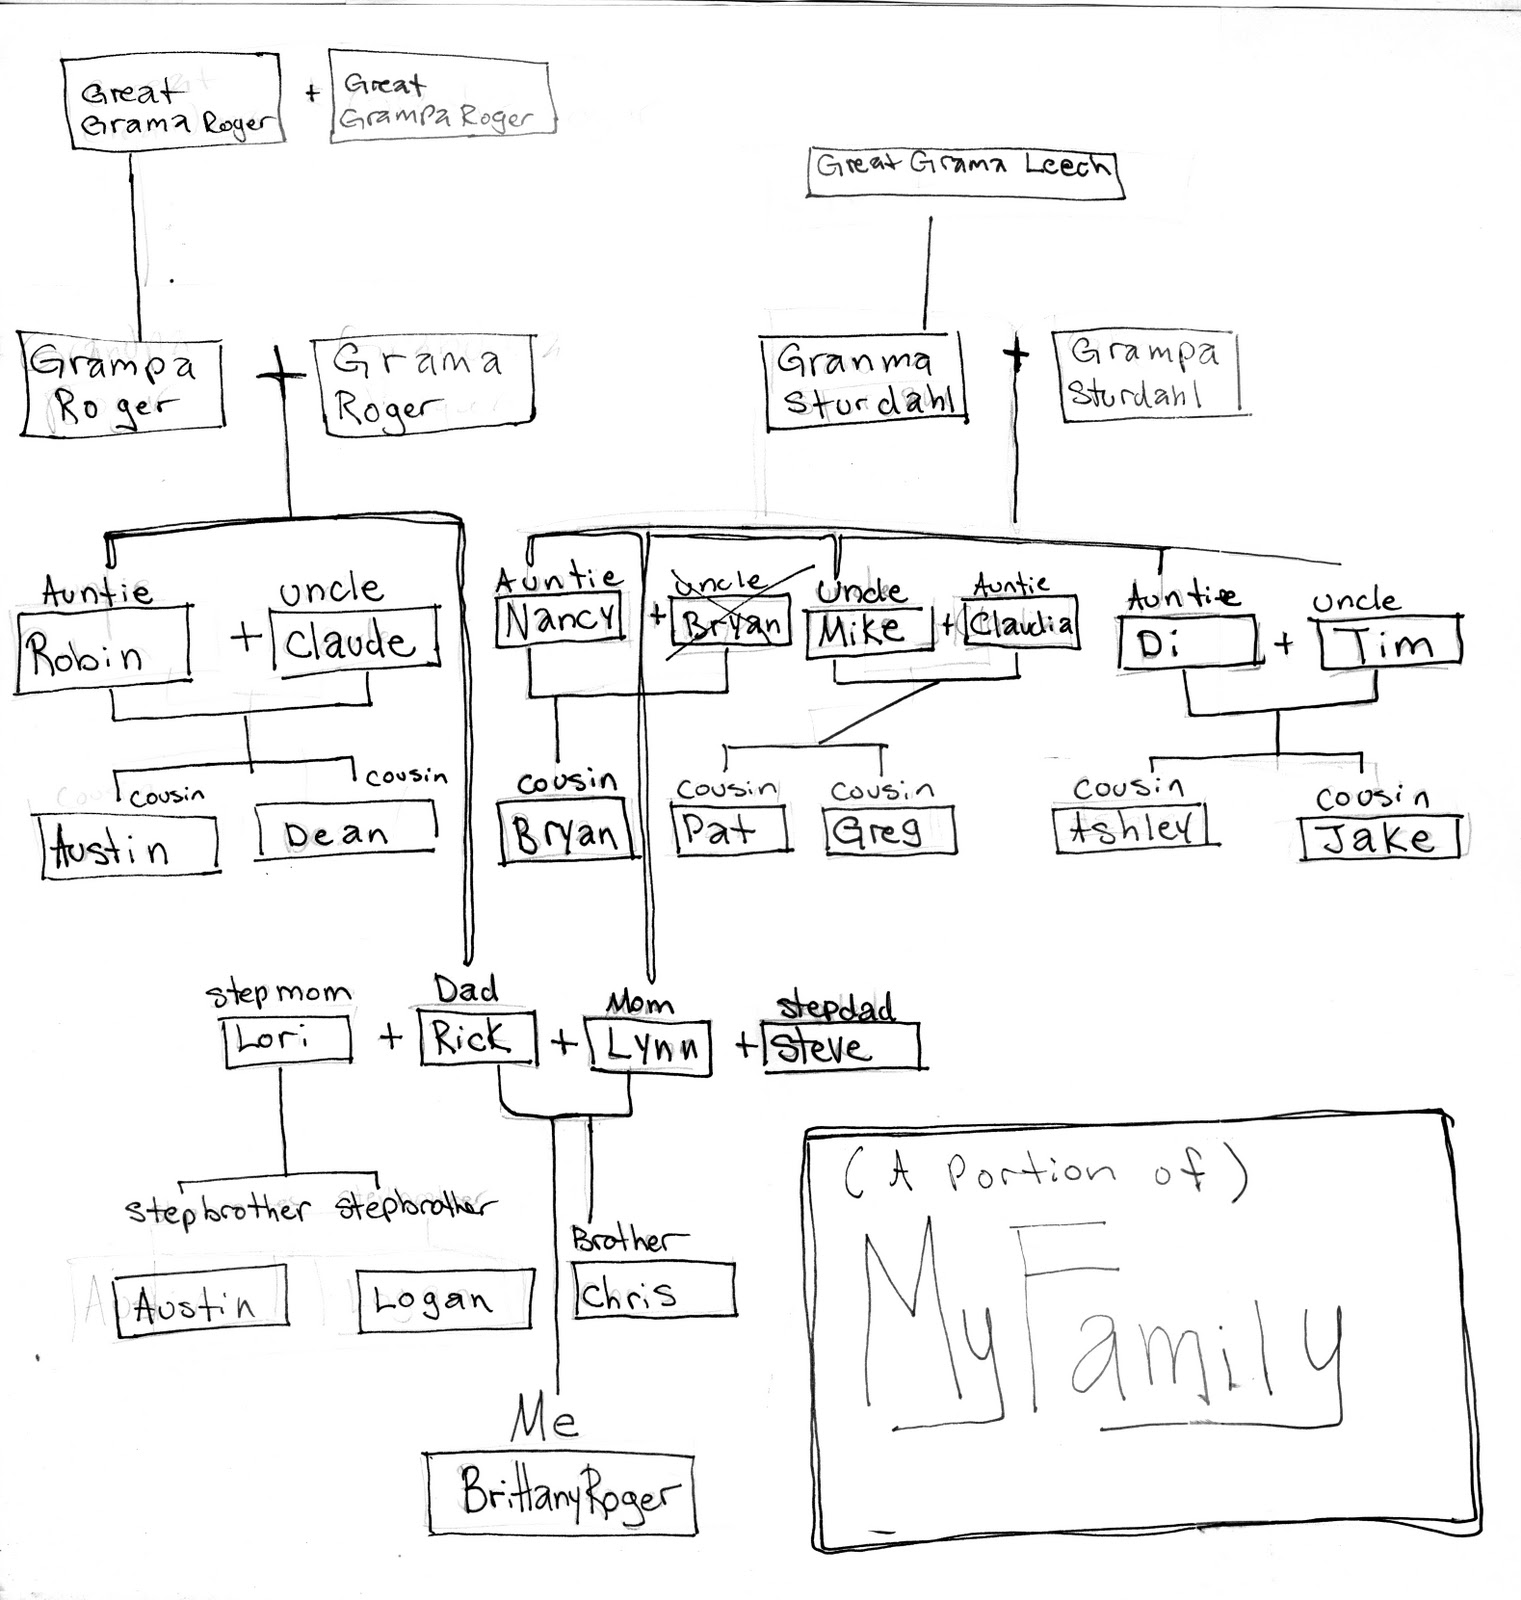 Great
Grama Roger
+
Great
Grampa Roger
Great Grama Leech
Grampa
Roger
+
Grama
Roger
Granma
Sturdahl
+
Grampa
Sturdahl
Auntie
Robin
+
uncle
Claude
Auntie
Nancy
+
uncle
Bryan
Uncle
Mike
+
Auntie
Claudia
Auntie
Di
+
uncle
Tim
cousin
Austin
cousin
Dean
cousin
Bryan
cousin
Pat
cousin
Greg
cousin
Ashley
cousin
Jake
stepmom
Lori
+
Dad
Rick
+
Mom
Lynn
+
stepdad
Steve
stepbrother
Austin
stepbrother
Logan
Brother
Chris
Me
Brittany Roger
(A Portion of)
My Family